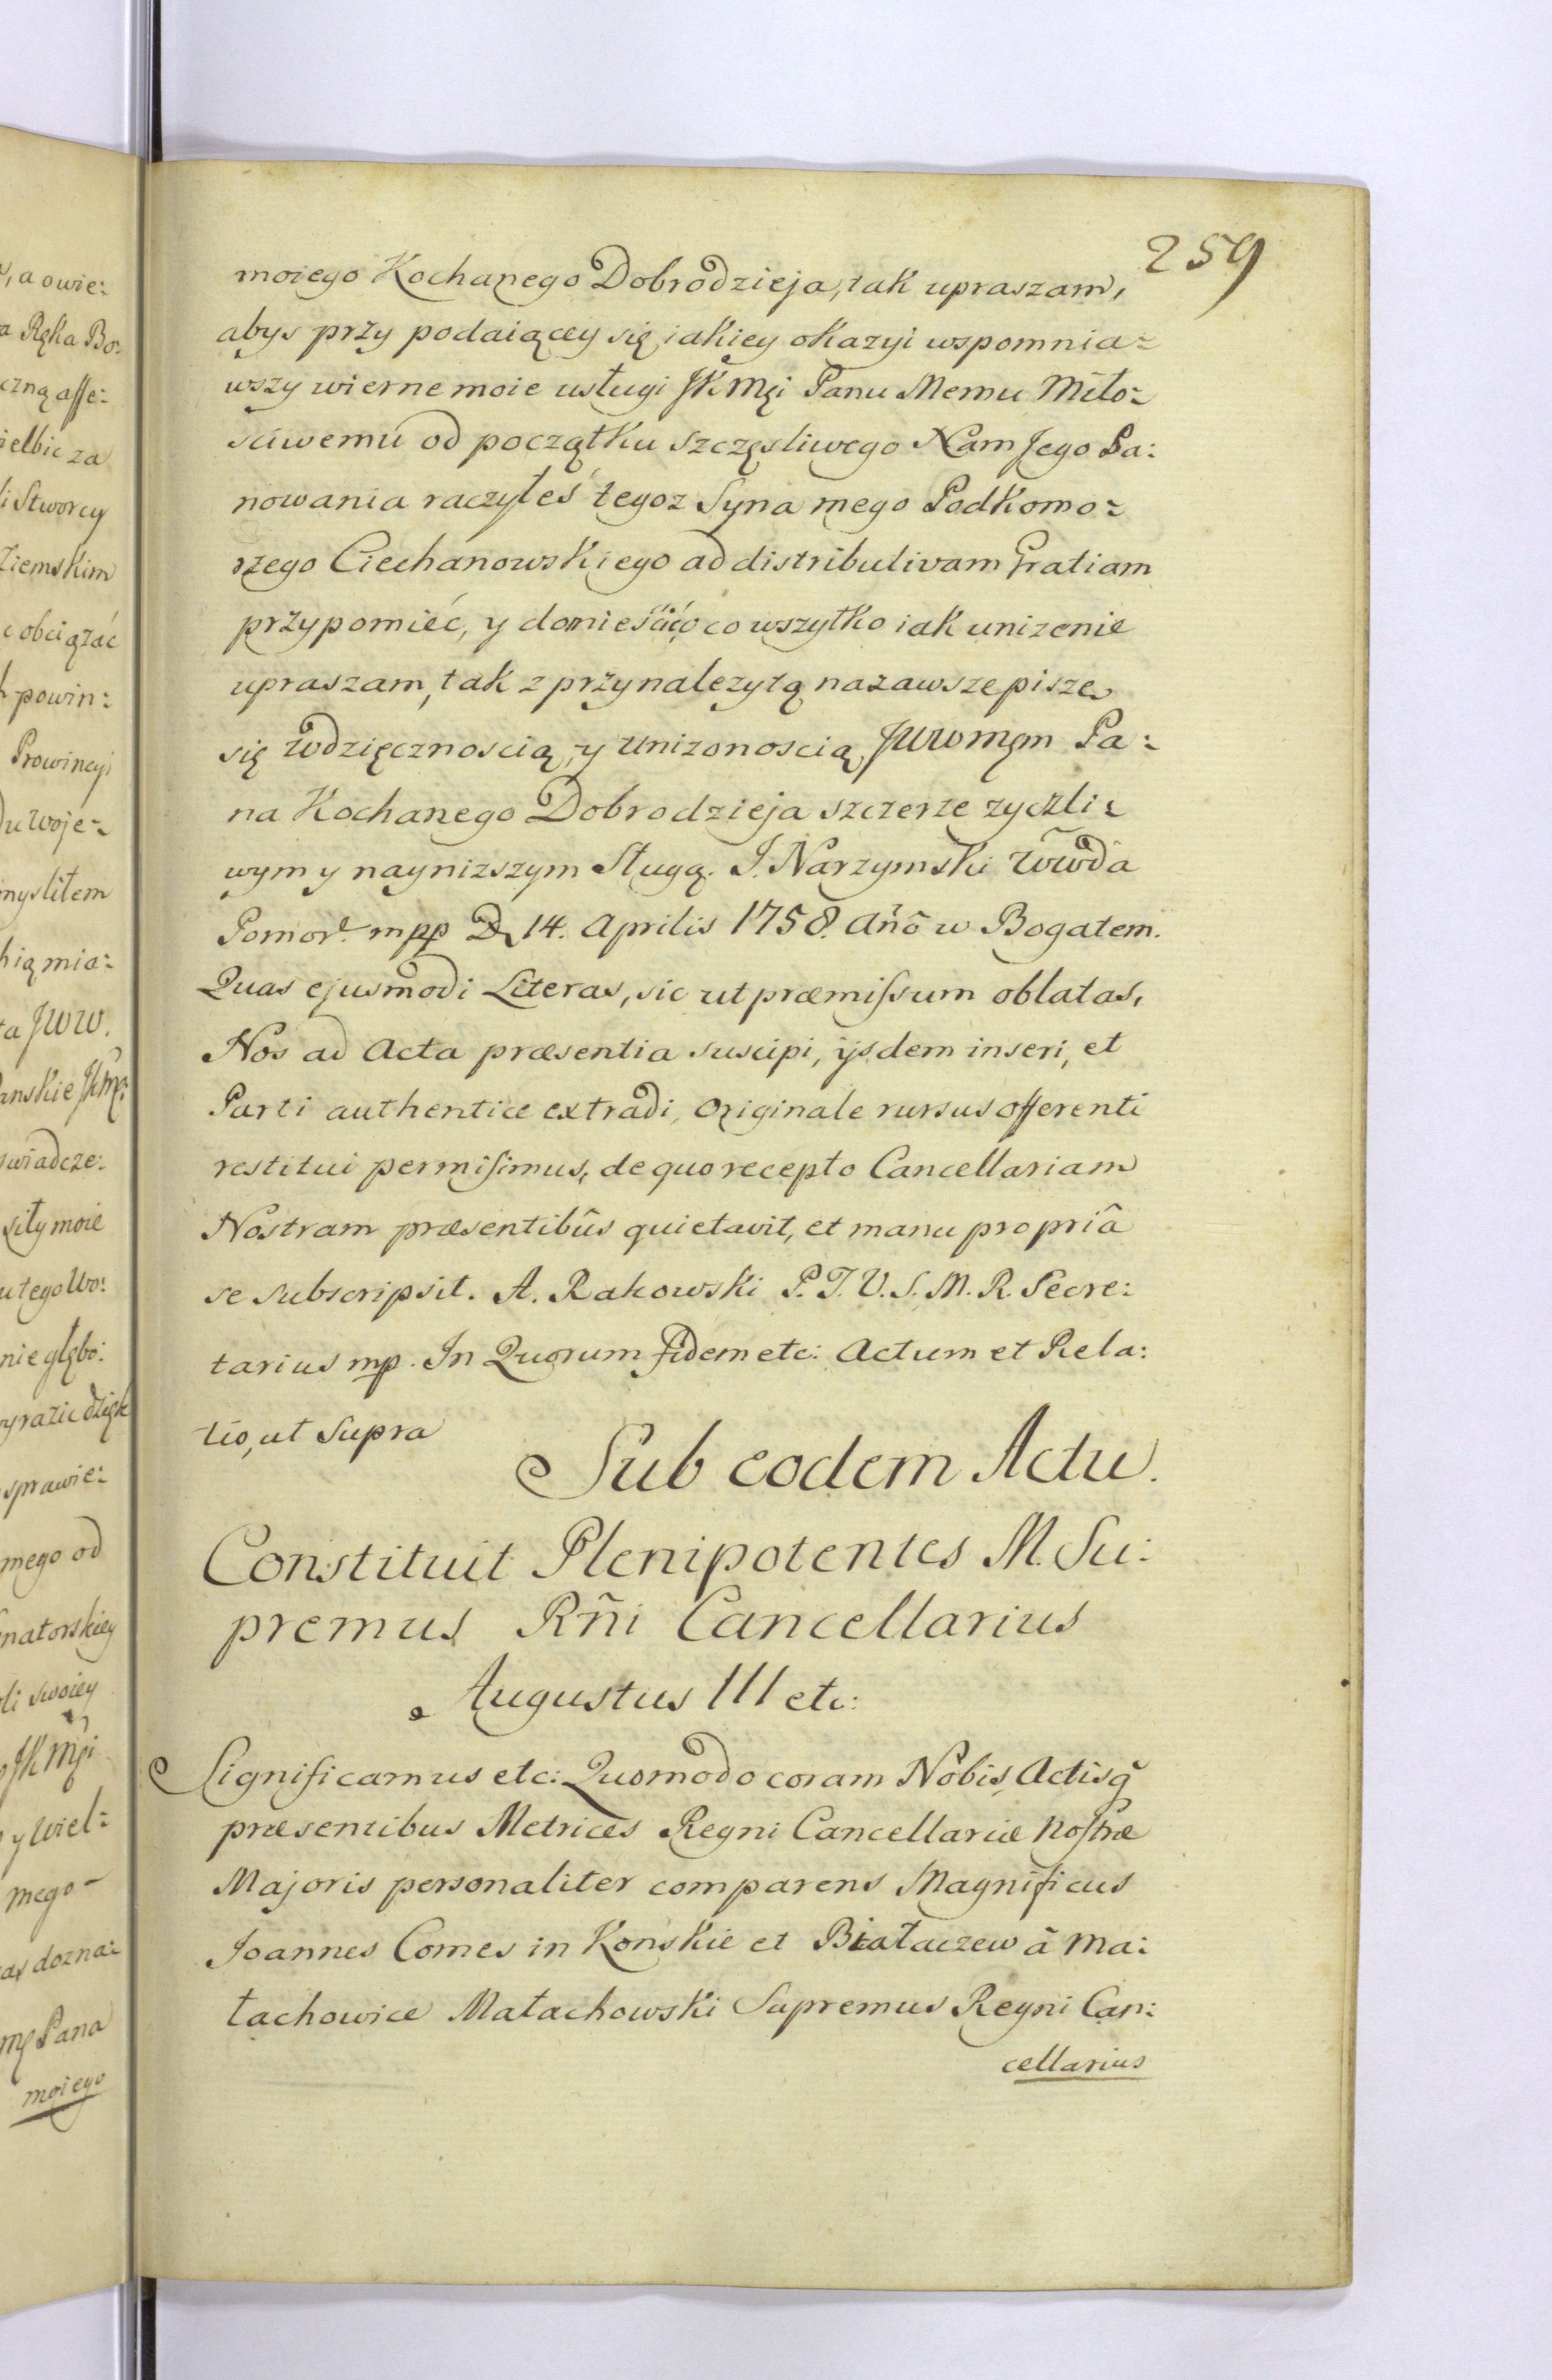 259
moiego Kochanego Dobrodzieja, tak upraszam,
abys przy podaiącey się iakiey okazyi wspomnia:
wszy wierne moie usługi JKMęi Panu Memu Miło:
sciwemu od początku szczęsliwego Nam Jego Pa:
nowania raczyłeś tegoz Syna mego Podkomo:
rzego Ciechanowskiego ad distributivam Gratiam
przypomieć, y donieść o co wszytko iak unizenie
upraszam, tak z przynalezytą nazawsze pisze
się wdzięcznoscią, y unizonoscią JWWMęm Pa:
na Kochanego Dobrodzieja szczerze zyczli:
wym y naynizszym Sługą. J. Narzymski Wwda
Pomor. mpp D. 14. Aprilis 1758. Año w Bogatem.
Quas ejusmodi Literas, sic ut præmissum oblatas,
Nos ad Acta præsentia suscipi, ijsdem inseri, et
Parti authentice extradi, Originale rursus offerenti
restitui permisimus, de quo recepto Cancellariam
Nostram præsentibûs quietavit, et manu propriâ
se subscripsit. A. Rakowski P. T. V. S. M. R. Secre:
tarius mp. In Quorum fidem etc: Actum et Rela:
tio, ut Supra
Sub eodem Actu.
Constituit Plenipotentes M. Su:
premus Rñi Cancellarius
Augustus III etc:
Significamus etc: Quomodo coram Nobis, Actisq̃
præsentibus Metrices Regni Cancellariæ Nostræ
Majoris personaliter comparens Magnificus
Joannes Comes in Konskie et Białaczew â Ma:
łachowice Małachowski Supremus Regni Can:
cellarius
a owie:
a Ręka Bo:
czną affe:
ielbic za
i Stworcy
Ziemskim
c obciązać
powin:
Prowincyi
du Woje:
myslitem
hią mia:
ta JWW.
anskie JKMę:
swiadcze:
siły moie
u tego Wo:
nie głębo:
yrazic dzięk
sprawie:
mego od
natorskiey
li swoiey
JKMęi
y Wiel:
mego
ax dozna:
mę Pana
moiego